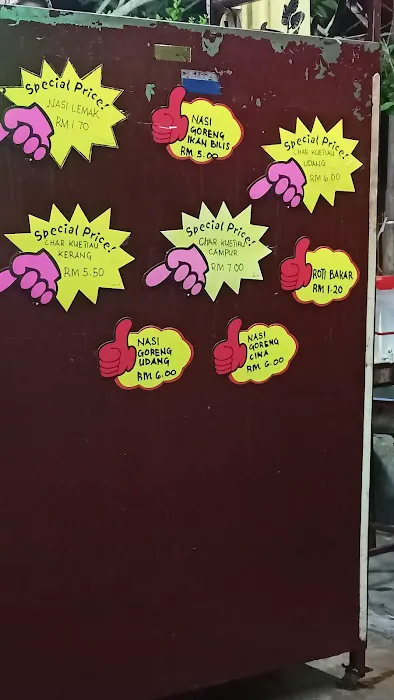 Special Price!
NASI LEMAK
RM 1.70
NASI
GORENG
IKAN BILIS
RM 5.00
Special Price!
CHAR KUETIAU
UDANG
RM 6.00
Special Price!
CHAR KUETIAU
KERANG
RM 5.50
Special Price!
CHAR KUETIAU
CAMPUR
RM 7.00
ROTI BAKAR
RM 1.20
NASI
GORENG
UDANG
RM 6.00
NASI
GORENG
CINA
RM 6.00